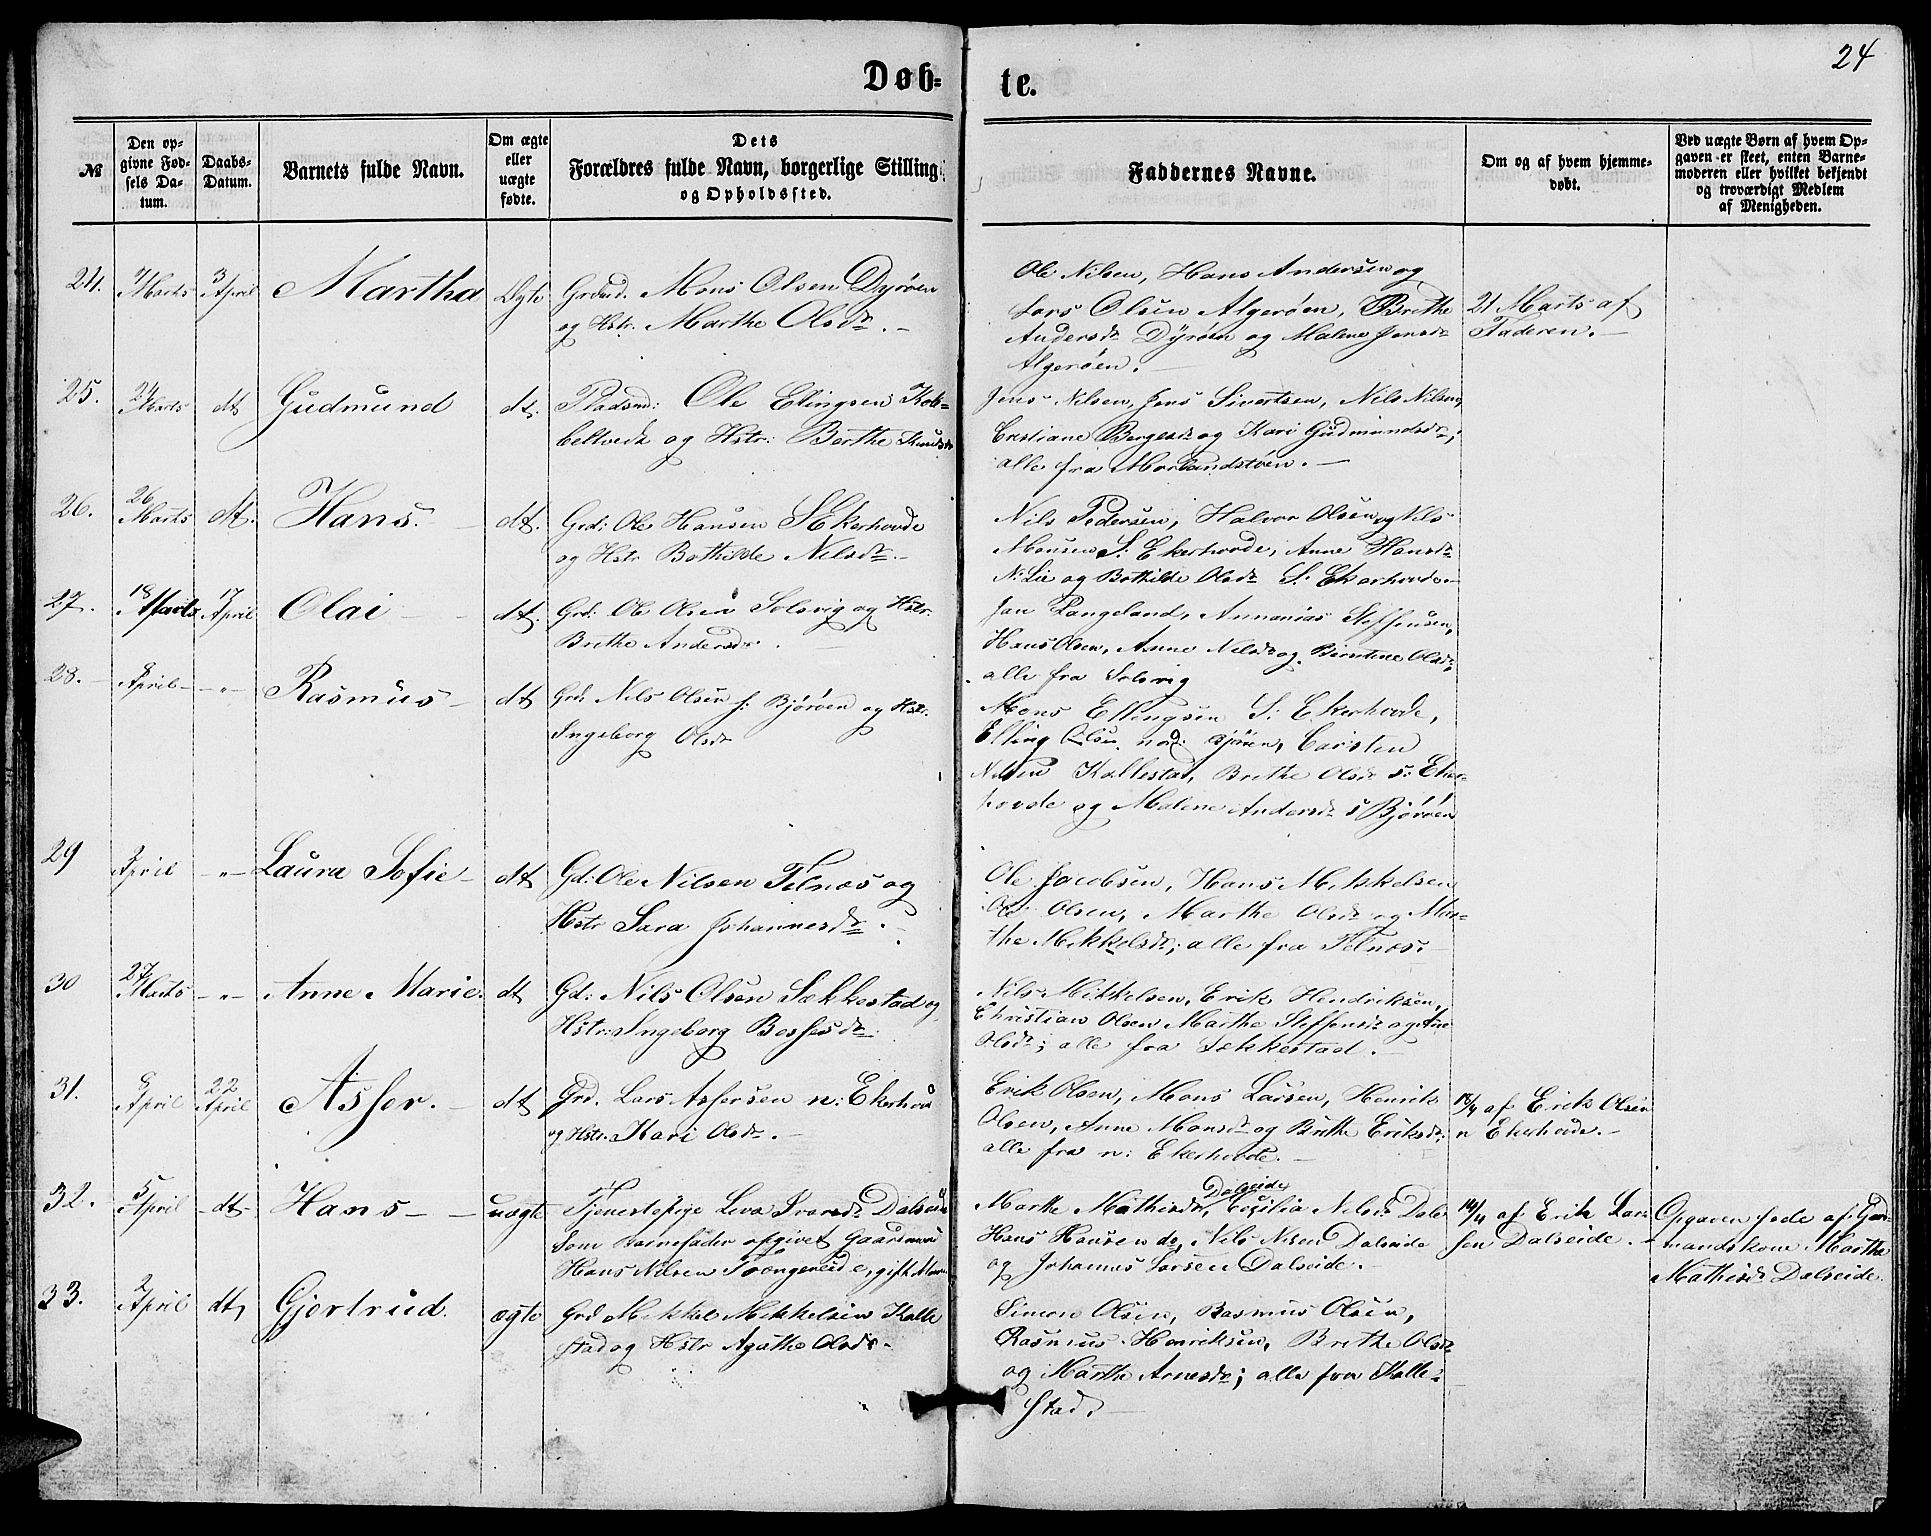 24
Døb-
te.
№
Den op-
givne Fød-
sels Da-
tum.
Daabs-
Datum.
Barnets fulde Navn.
Om ægte
eller
uægte
fødte.
Dets
Forældres fulde Navn, borgerlige Stilling
og Opholdssted.
Faddernes Navne.
Om og af hvem hjemme-
døbt.
Ved uægte Børn af hvem Op-
gaven er skeet, enten Barne-
moderen eller hvilket bekjendt
og troværdigt Medlem
af Menigheden.
24. Marts 3 April Martha Ægte Mons Olsen Dyröen
og Hstr. Marthe Olsdr. -
Ole Nilsen, Hans Andersen og
Lars Olsen Algeröen, Brithe
Andersdr Dyröen og Malene Jensdr
Algeröen.
21 Marts af
Faderen. -
25. 24 Marts dt Gudmund dt. Pladsmd: Ole Elingsen Kob-
beltvedt og Hstr: Berthe Knudsdr
Jens Nilsen, Jens Sivertsen, Nils Nilsen,
Cristiane Børgesdr og Kari Gudmundsdr;
alle fra Morlandstöen. -
26. 26 Marts dt. Hans. dt. Grd: Ole Hansen S Ekerhovde
og Hstr Bothilde Nilsdr. -
Nils Pedersen, Halvor Olsen og Nils
Monsen S: Ekerhovde, Anne Hansdr
N: Lie og Bothilde Olsdr S: Ekerhovde -
27. 18 Marts 17 April Olai dt. Grd: Ole Olsen Solsvig og Hstr.
Brithe Andersdr. -
Jan Langeland, Annanias Steffensen,
Hans Olsen, Anne Nilsdr og Berntine Olsdr,
alle fra Solsvig
28. - 8 April - - " - Rasmus - dt Grd: Nils Olsen s: Björöen og Hstr.
Ingeborg Olsdr
Mons Ellingsen S: Ekerhovde,
Elling Olsen nod: Björen, Carsten
Nilsen Kallestad, Brithe Olsdr s: Eker-
hovde og Malene Andersdr s Björöen
29 2 April - " - Laura Sofie - dt Gd: Ole Nilsen Telnæs og
Hstr Sara Johannesdr. -
Ole Jacobsen, Hans Mikkelsen
Ole Olsen, Marthe Olsdr og Mar-
the Mikkelsdr; alle fra Telnæs.
30 27 Marts - " - Anne Marie. dt Gd: Nils Olsen Sækkestad og
Hstr: Ingeborg Børgesdr.
Nils Mikkelsen, Erik Hendriksen,
Christian Olsen Marthe Steffensdr og Ane
Olsdr; alle fra Sækkestad. -
31. April 22 April Asser. - dt Grd. Lars Assersen n: Ekerhovd
og Hstr: Kari Olsdr. -
Erik Olsen, Mons Larsen, Henrik
Olsen, Anne Monsdr og Brithe Eriksdr.
alle fra n: Ekerhovde. -
af Erik Olsen
n Ekerhovde. -
32. 5 April - dt - Hans - - uægte Tjenestepige Dalseide
som Barnefader opgivet Gaardmand
Hans Nilsen gift Mand
Marthe Mathisdr Dalseide, Cecilia Nilsdr Dalse
Hans Hansen do, Nils Nilsen Dalseide
og Johannes Larsen Dalseide. -
af Erik Lar-
sen Dalseide. -
Opgaven skede af Gaard-
mandskone Martha
Mathisdr Dalseide
33. 2 April dt, Gjertrud. ægte Grd Mikkel Mikkelsen Kalle
stad og Hstr Agathe Olsdr -
Simon Olsen, Rasmus Olsen,
Rasmus Henriksen, Brithe Olsdr
og Marthe Arnesdr; alle fra Kalle-
stad. -